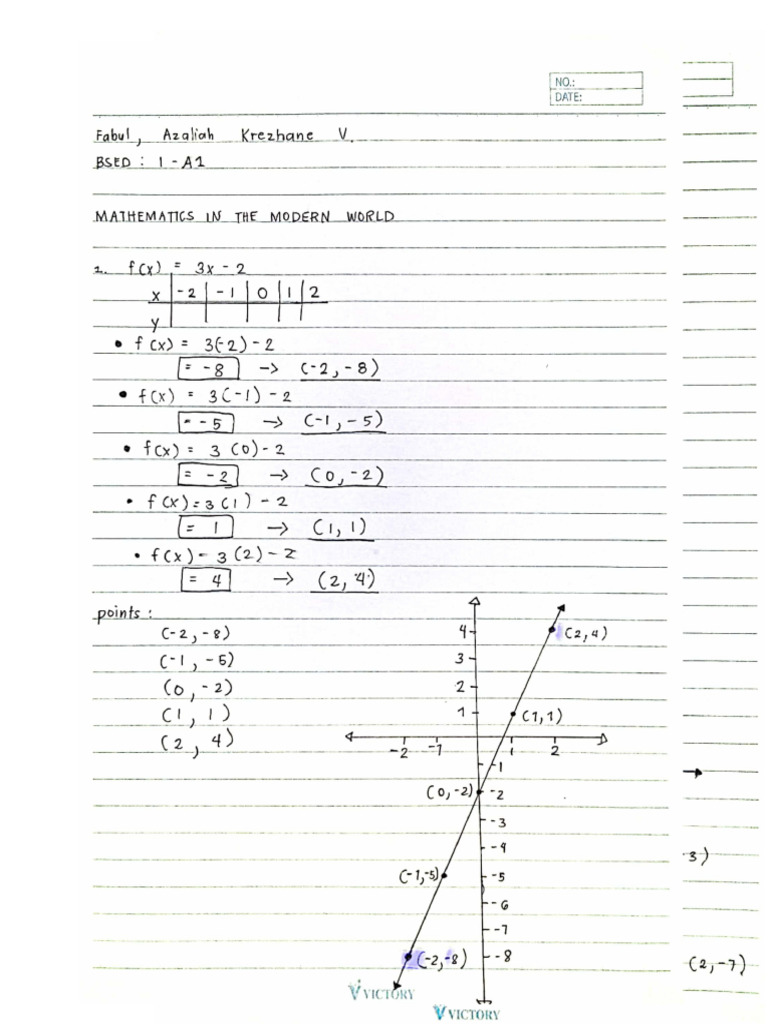 NO.:
DATE:
Fabul, Azaliah Krezhane V.
BSED : 1 - A1
MATHEMATICS IN THE MODERN WORLD
1. f(x) = 3x - 2
x -2 -1 0 1 2
y
• f(x) = 3(-2) - 2
= -8 → (-2, -8)
• f(x) = 3(-1) - 2
= -5 → (-1, -5)
• f(x) = 3 (0) - 2
= -2 → (0, -2)
• f(x) = 3(1) - 2
= 1 → (1, 1)
• f(x) - 3(2) - 2
= 4 → (2, 4)
points :
(-2, -8)
(-1, -5)
(0, -2)
(1, 1)
(2, 4)
4 (2, 4)
3
2
1 (1, 1)
-2 -1 1 2
-1
(0, -2) -2
-3
-4
(-1, -5) -5
-6
-7
(-2, -8) -8
VICTORY
VICTORY
3)
(2, -7)